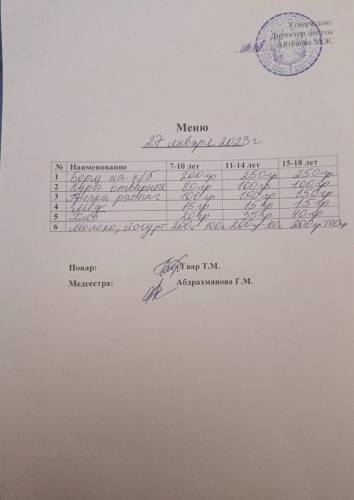 Утверждаю:
Директор школы
Айтбаева М.Ж.
Меню
27 января 2023 г
№ Наименование 7-10 лет 11-14 лет 15-18 лет
1 Борщ на к/б 200 гр 250 гр 250 гр
2 Куры отварные 80 гр 100 гр 100 гр
3 100 гр 150 гр 150 гр
4 15 гр 15 гр 15 гр
5 Хлеб 20 гр 35 гр 40 гр
6 Молоко, йогурт 200 100 200 гр 100 200 гр 100 гр
Повар: Гаар Т.М.
Медсестра: Абдрахманова Г.М.